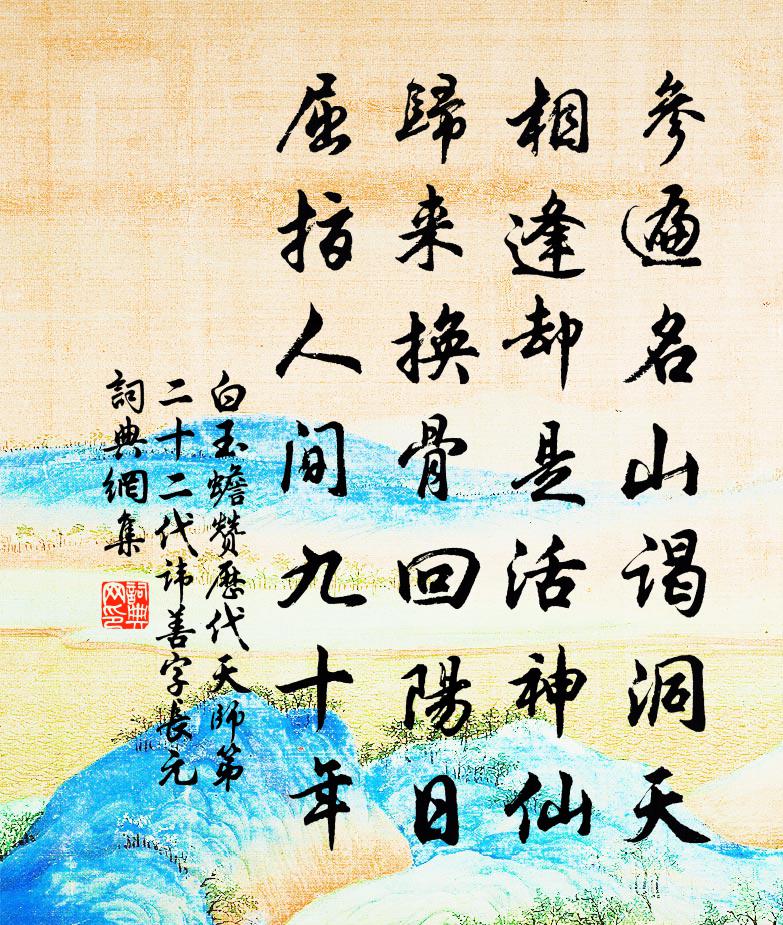 參遍名山謁洞天
相逢却是活神仙
歸来換骨回陽日
屈指人間九十年
白玉蟾贊歷代天師第
二十二代諱善字長元
詞典網集
詞典網印